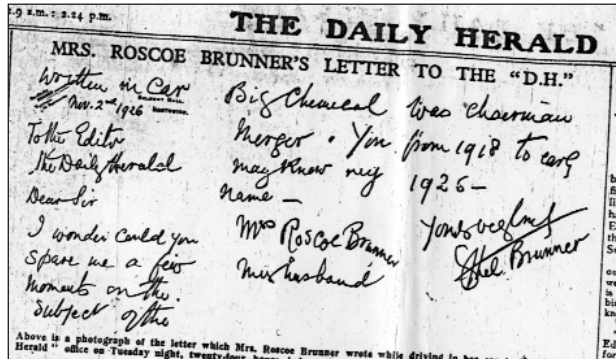 2.9 a.m.: 2.24 p.m.
THE DAILY HERALD
MRS. ROSCOE BRUNNER'S LETTER TO THE "D.H."
Written in Car
BELMONT HALL,
NORTHWICH.
Nov. 2nd 1926
To the Editor
The Daily Herald
Dear Sir
I wonder could you
spare me a few
moments on the
subject of the
Big Chemical
Merger. You
may know my
name —
Mrs Roscoe Brunner
My husband
was chairman
from 1918 to early
1926 —
Yours
Ethel Brunner
Above is a photograph of the letter which Mrs. Roscoe Brunner wrote while driving in her
Herald" office on Tuesday night,